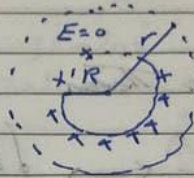 E=0
r
R